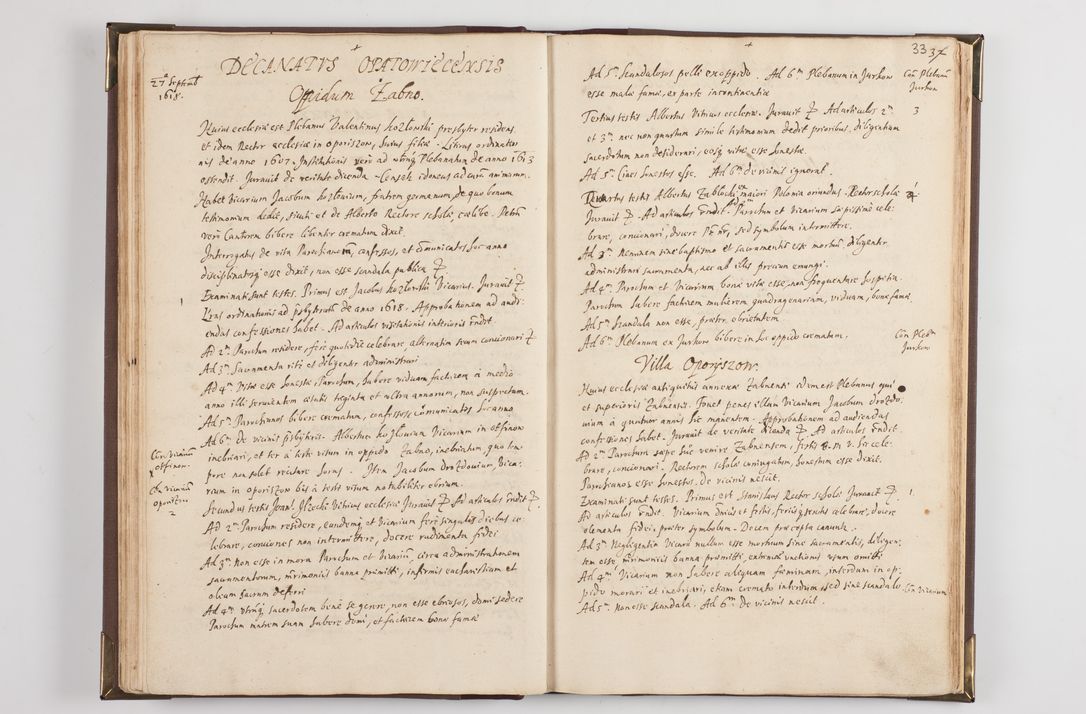 DECANATVS OPATOWIECENSIS
27a Septemb
1618.
Oppidum Żabno.
Huius ecclesiæ est Plebanus Valentinus Kozłowski presbyter residens
et idem Rector ecclesiæ in Oporiszow, huius filiæ. Litras ordinatio-
nis de anno 1607. Institutionis verò ad utrumq Plebanatum de anno 1613
ostendit. Iurauit de veritate dicenda. Censetr idoneus ad curam animarum.
Habet Vicarium Jacobum Kozlouium, fratrem germanum, de quo bonum
testimonium dedit, sicuti et de Alberto Rectore scholæ, cælibe. Petrum
verò Cantorem bibere libenter crematum dixit.
Interrogatus de vita Parochianorum, confessos, et communicatos hoc anno
disciplinatosq esse dixit, non esse scandala publica
Examinati sunt testes. Primus est Jacobus Kozlowski Vicarius. Iurauit
1
Litras ordinationis ad presbytratum de anno 1618. Approbationem ad audi-
endas confessiones habet. Ad articulos visitationis interioris rndit.
Ad 2m Parochum residere, ferè quotidie celebrare, alternatim secum concionari
Ad 3m Sacramenta ritè et diligenter administrari
Ad 4m Vitæ esse honestæ, Parochum, habere viduam factricem à medio
anno illi seruientem ætatis triginta et ultra annorum, non suspectam.
Ad 5m Parochianos bibere crematum, confessos et communicatos hoc anno
Ad 6m De vicinis presbyteris. Albertus Vicarium in Otfinow
Con. Vicarium
Otfinon.
inebriari, et ter à teste visum in oppido Zabno, inebriatum, quo tem-
pore non solet recitare horas. Item Jacobum Drozdouium, Vica-
Con. Vicarium
Oporiszow
2
rium in Oporiszow bis à teste visum notabiliter ebrium.
Secundus testis Vitricus ecclesiæ Iurauit Ad articulos rndit
Ad 2m Parochum residere, eundemq et Vicarium ferè singulis diebus ce-
lebrare, conciones non intermittere, docere rudimenta fidei
Ad 3m Non esse in mora Parochum et Vicarium circa administrationem
sacramentorum, mrimonijs banna præmitti, infirmis eucharistiam et
oleum sacrum deferri
Ad 4m utrumq sacerdotem benè se gerere, non esse ebriosos, domi sedere
Parochum matrem suam habere domi, et factricem bonæ famæ
33 37
Ad 5m Scandalosos pelli ex oppido. Ad 6m Plebanum in Jurkow
Con Plebanum
Jurkow
esse malæ famæ, ex parte incontinentiæ
Tertius testis Albertus Vitricus ecclesiæ. Iurauit Ad articulos 2m
3
et 3m nec non quartum simile testimonium dedit prioribus, diligentiam
sacerdotum non desiderari, eosq vitæ esse honestæ.
Ad 5m Ciues honestos esse. Ad 6m De vicinis ignorat.
Quartus testis Albertus Zablocki ex maiori Polonia oriundus. Rector scholæ
4
Iurauit. Ad articulos rndit. Ad Parochum et Vicarium sæpissimè cele-
brare, concionari, docere Pr nr, sed symbolum intermittere.
Ad 3m Neminem sine baptismo et sacramentis esse mortuum, diligenter
administrari sacramenta, nec ab illis precium emungi.
Ad 4m Parochum et Vicarium bonæ vitæ esse, non frequentare hospitia.
Parochum habere factricem mulierem quadragenariam, viduam, bonæ famæ.
Ad 5m Scandala non esse, præter ebrietatem
Ad 6m Plebanum ex Jurkow bibere in hoc oppido crematum.
Con Plebm
Jurkow
Villa Oporyszow.
Huius ecclesiæ antiquitus annexæ Zabnensi idem est Plebanus qui
et superioris Zabnensis. Fouet penes illam Vicarium Jacobum Drozdo-
uium à quatuor annis hic manentem. Approbationem ad audiendas
confessiones habet. Iurauit de veritate dicenda. Ad articulos rndit.
Ad 2m Parochum sæpe huc venire Zabnensem, hic cele-
brare, concionari. Rectorem scholæ coniugatum, honestum esse dixit.
Parochianos esse honestos, de vicinis nescit.
Examinati sunt testes. Primus est Stanislaus Rector scholæ Iurauit
1.
Ad articulos rndit. Vicarium dnicis et festis, ferijs sextis celebrare, docere
elementa fidei, præter symbolum. Decem præcepta canunt.
Ad 3m Negligentia Vicarij nullum esse mortuum sine sacramentis, diligen-
tem esse mrimonijs banna præmitti, extremæ unctionis usum omitti
Ad 4m Vicarium non habere aliquam fæminam, interdum in op-
pido morari et inebriari, etiam cremato interdum, sed sine scandalo
Con Vicarium
Ad 5m Non esse scandala. Ad 6m De vicinis nescit.